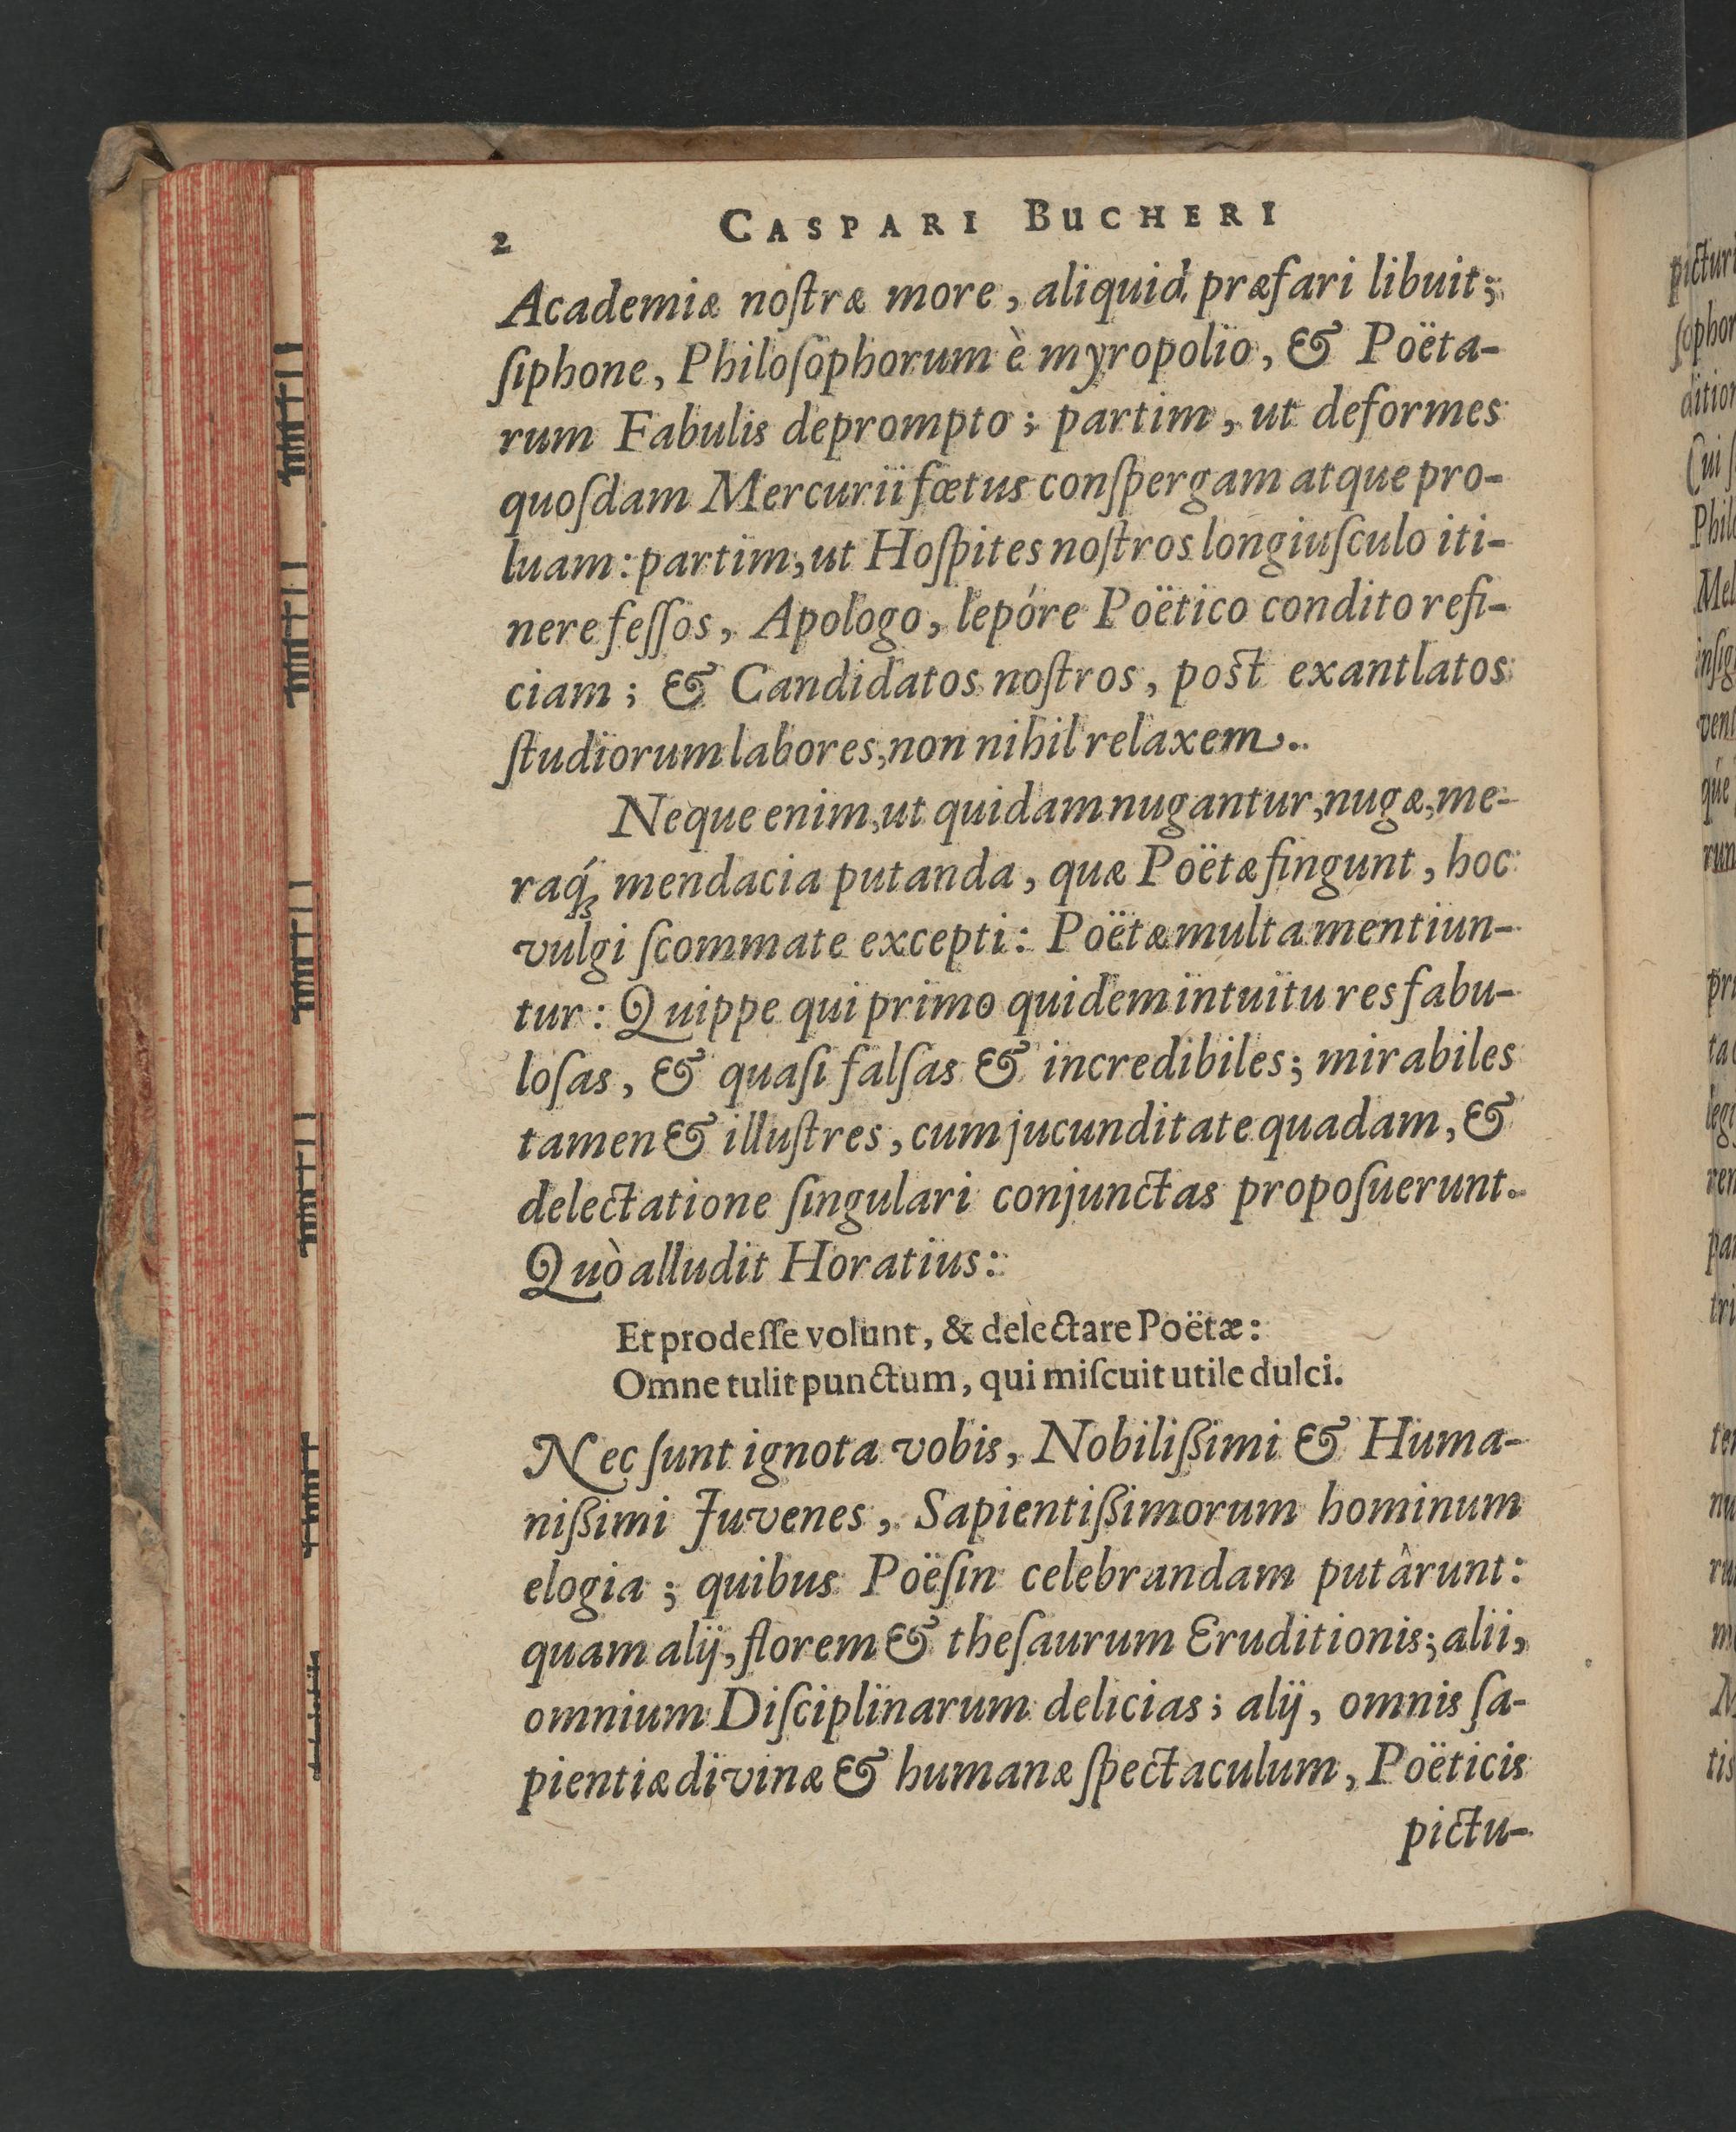 2 CASPARI BUCHERI
Academiæ noſtræ more, aliquid præfari libuit;
ſiphone, Philoſophorum è myropolio, & Poëta-
rum Fabulis deprompto; partim, ut deformes
quoſdam Mercurii fœtus conſpergam atque pro-
luam: partim, ut Hoſpites noſtros longiuſculo iti-
nere feſſos, Apologo, lepóre Poëtico condito refi-
ciam; & Candidatos noſtros, poſt exantlatos
ſtudiorum labores, non nihil relaxem.
Neque enim, ut quidam nugantur, nugæ, me-
raq́ꝫ mendacia putanda, quæ Poëtæ fingunt, hoc
vulgi ſcommate excepti: Poëtæ multa mentiun-
tur: Quippe qui primo quidem intuitu res fabu-
loſas, & quaſi falſas & incredibiles; mirabiles
tamen & illuſtres, cum jucunditate quadam, &
delectatione ſingulari conjunctas propoſuerunt.
Quò alludit Horatius:
Et prodeſſe volunt, & delectare Poëtæ:
Omne tulit punctum, qui miſcuit utile dulci.
Nec ſunt ignota vobis, Nobilißimi & Huma-
nißimi Juvenes, Sapientißimorum hominum
elogia; quibus Poëſin celebrandam putârunt:
quam alij, florem & theſaurum Eruditionis; alii,
omnium Diſciplinarum delicias; alij, omnis ſa-
pientiæ divinæ & humanæ ſpectaculum, Poëticis
pictu-